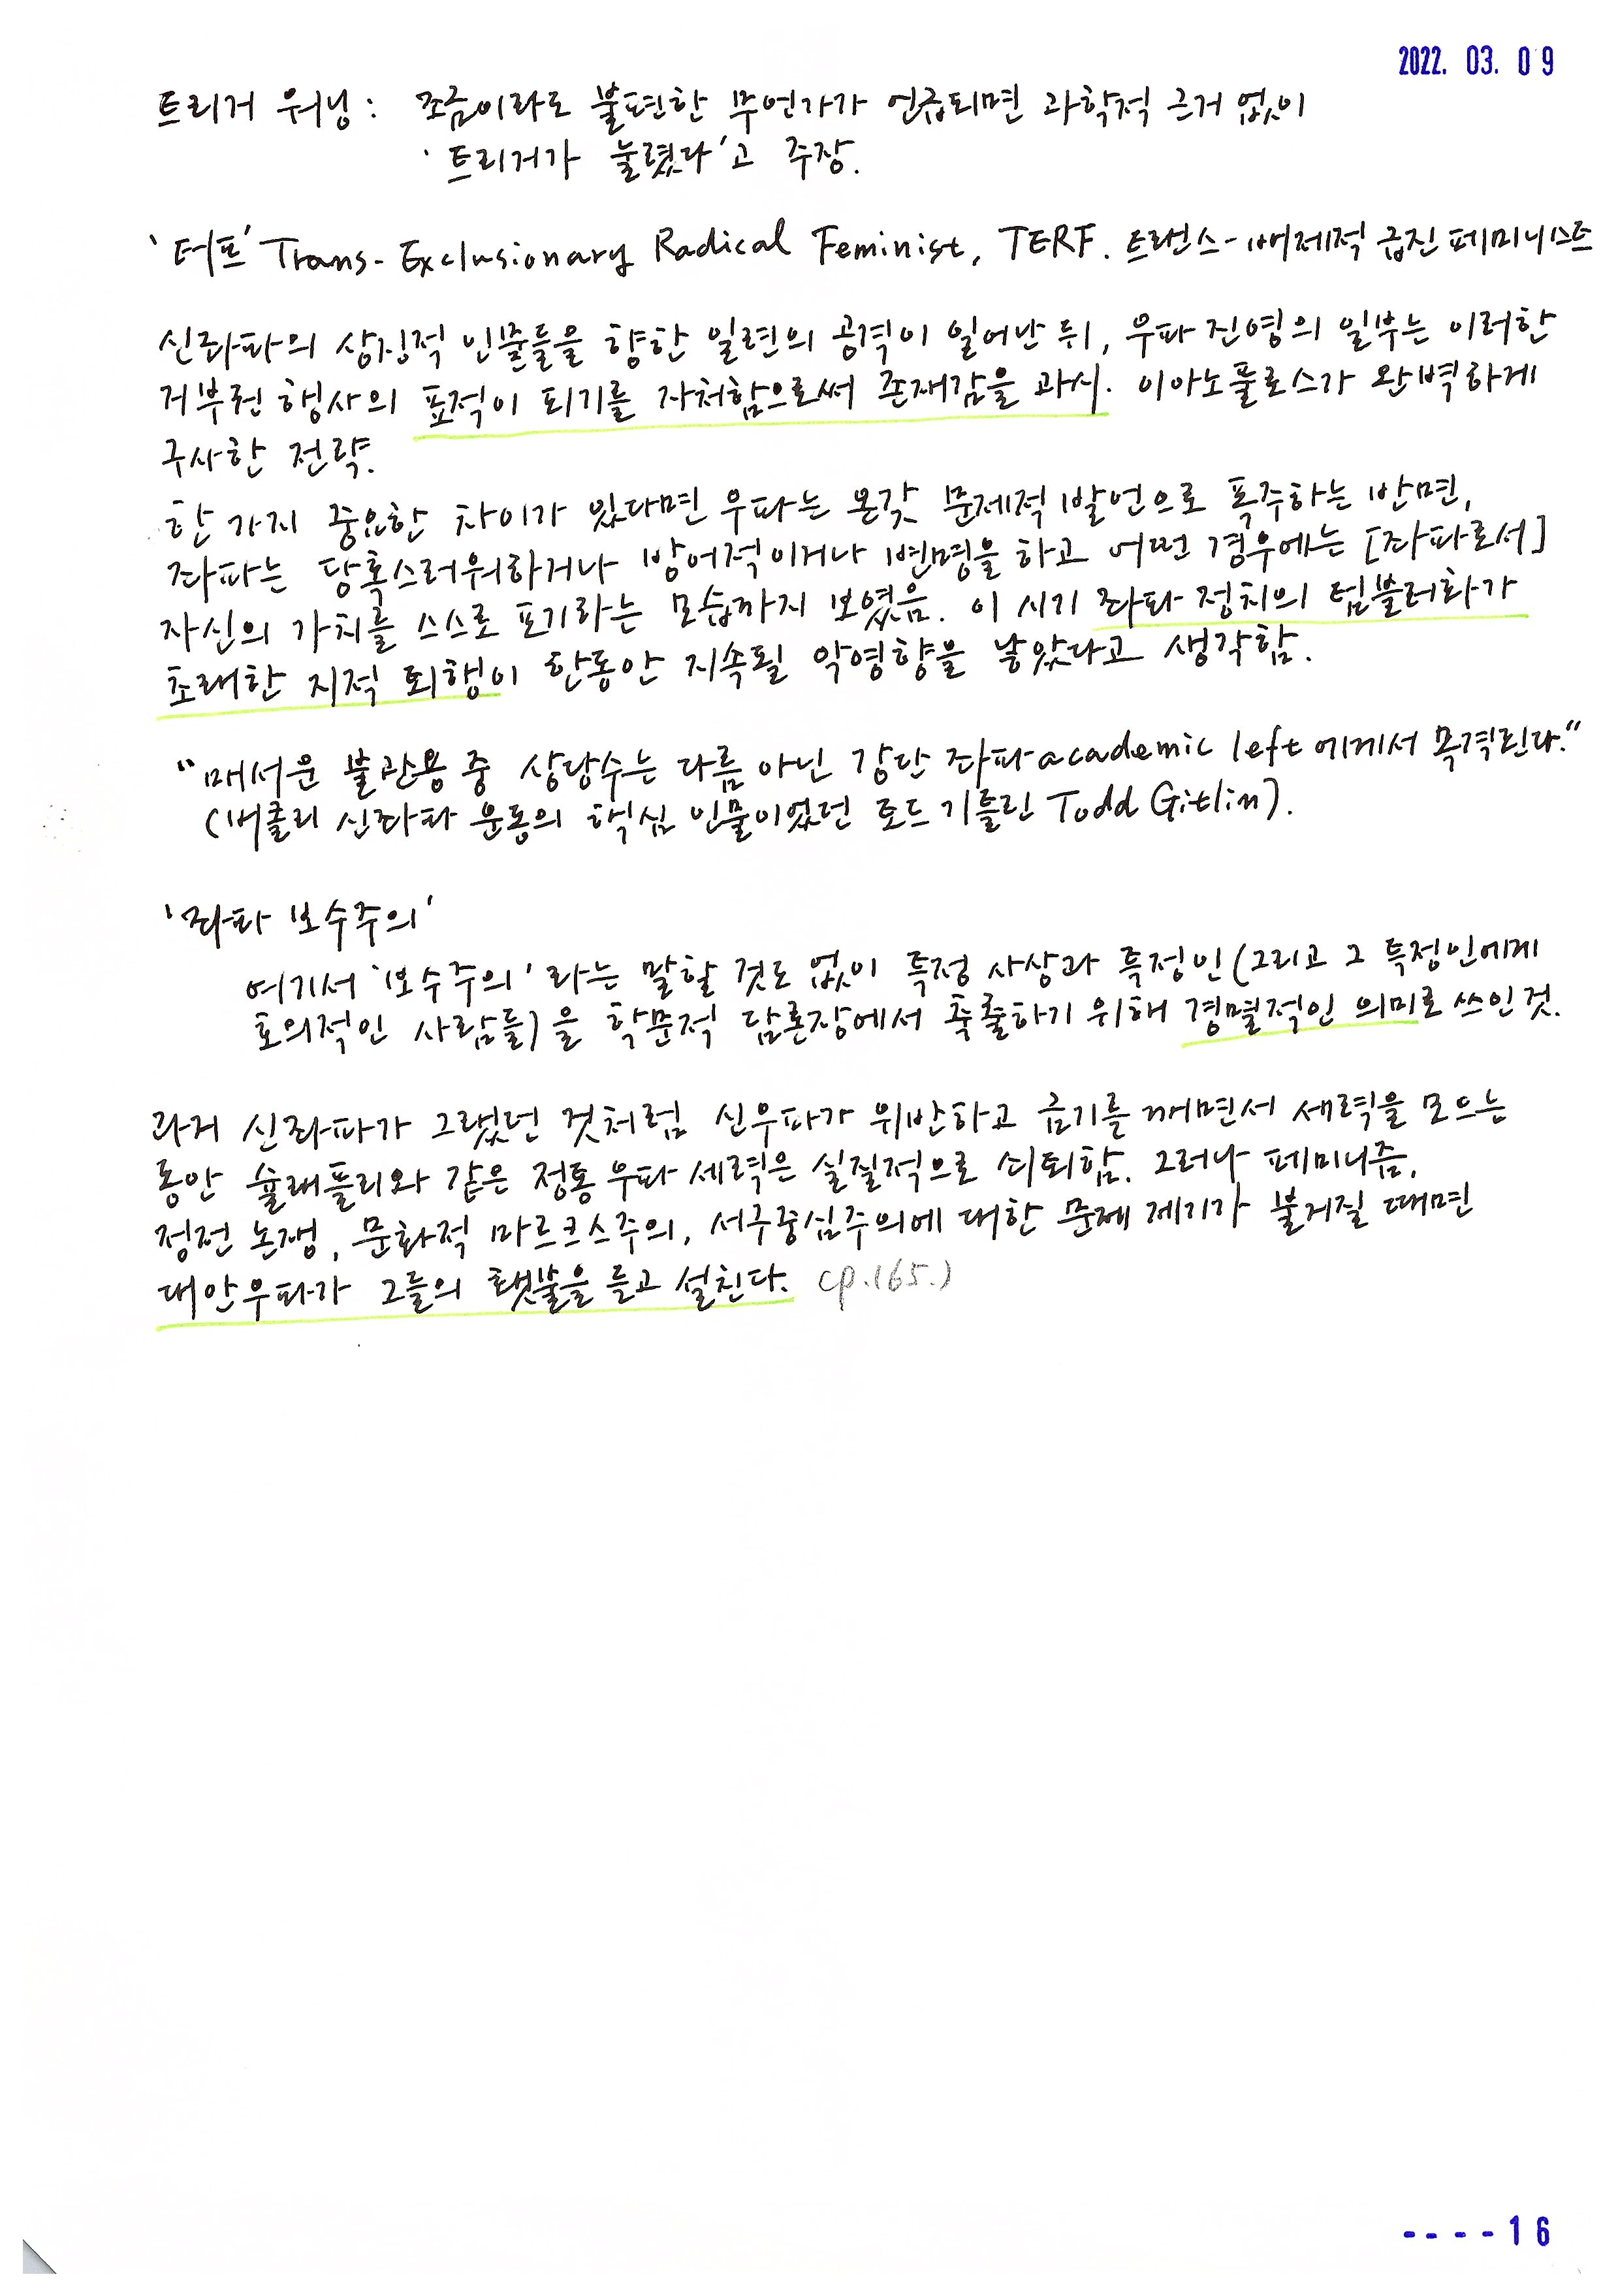 2022. 03. 09
트리거 워닝: 조금이라도 불편한 무언가가 언급되면 과학적 근거 없이
'트리거가 눌렸다'고 주장.
'터프' Trans-Exclusionary Radical Feminist, TERF. 트랜스-배제적 급진 페미니스트
신좌파의 상징적 인물들을 향한 일련의 공격이 일어난 뒤, 우파 진영의 일부는 이러한
거부권 행사의 표적이 되기를 자처함으로써 존재감을 과시. 이아노풀로스가 완벽하게
구사한 전략.
한 가지 중요한 차이가 있다면 우파는 온갖 문제적 발언으로 폭주하는 반면,
좌파는 당혹스러워하거나 방어적이거나 변명을 하고 어떤 경우에는 [좌파로서]
자신의 가치를 스스로 포기하는 모습까지 보였음. 이 시기 좌파 정치의 텀블러화가
초래한 지적 퇴행이 한동안 지속될 악영향을 낳았다고 생각함.
"매서운 불관용 중 상당수는 다름 아닌 강단 좌파academic left에게서 목격된다."
(버클리 신좌파 운동의 핵심 인물이었던 토드 기틀린 Todd Gitlin).
'좌파 보수주의'
여기서 '보수주의'라는 말할 것도 없이 특정 사상과 특정인(그리고 그 특정인에게
호의적인 사람들)을 학문적 담론장에서 축출하기 위해 경멸적인 의미로 쓰인 것.
과거 신좌파가 그랬던 것처럼 신우파가 위반하고 금기를 깨면서 세력을 모으는
동안 슐래플리와 같은 정통 우파 세력은 실질적으로 쇠퇴함. 그러나 페미니즘,
정전 논쟁, 문화적 마르크스주의, 서구중심주의에 대한 문제 제기가 불거질 때면
대안우파가 그들의 횃불을 들고 설친다. (p.165.)
----16